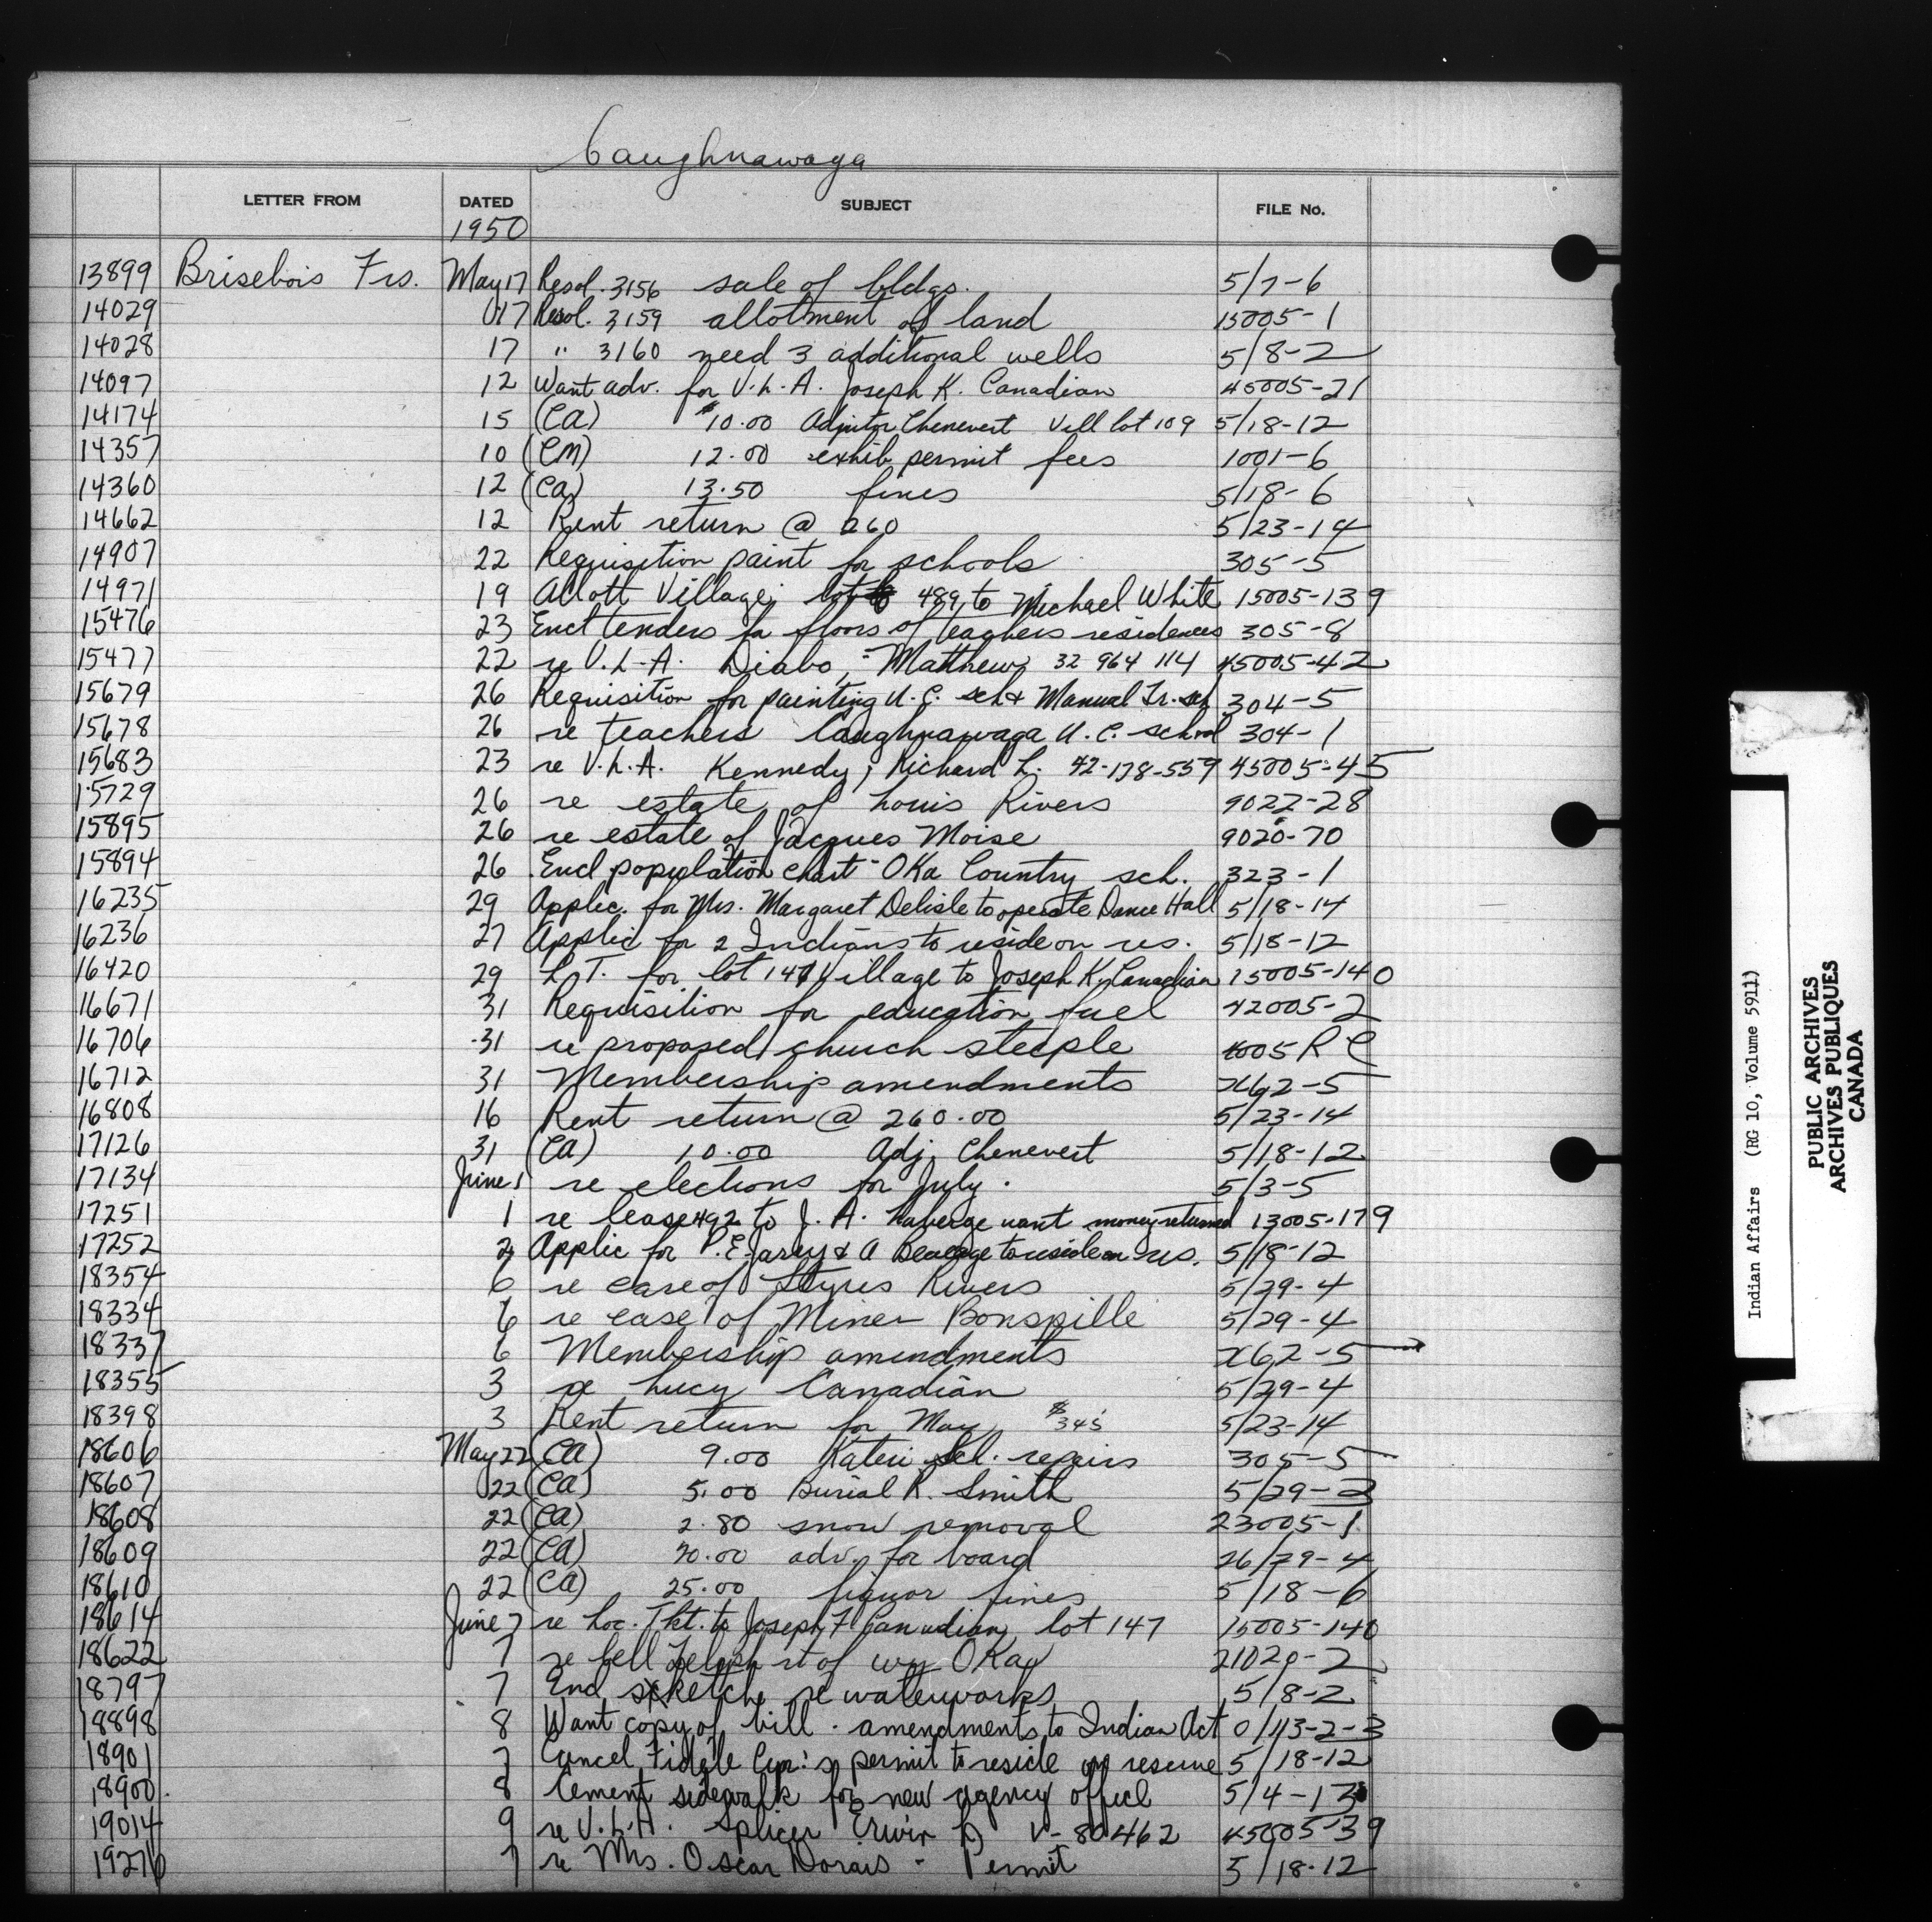 Caughnawaga
LETTER FROM DATED SUBJECT FILE No.
1950
13899 Brisebois Frs. May 17 Resol. 3156 sale of bldgs. 5/7-6
14029 17 Resol. 3159 allotment of land 15005-1
14028 17 " 3160 need 3 additional wells 5/8-2
14097 12 Want adv. for V.L.A. Joseph K. Canadian 45005-21
14174 15 (CA) $10.00 Adjutor Chenevert Vill lot 109 5/18-12
14357 10 (CM) 12.00 exhib permit fees 1001-6
14360 12 (CA) 13.50 fines 5/18-6
14662 12 Rent return @ 260 5/23-14
14907 22 Requisition paint for schools 305-5
14971 19 Allott Village lot 489 to Michael White 15005-139
15476 23 Encl tenders for floors of teachers residences 305-8
15477 22 re V.L.A. Diabo, Matthew 32 964 114 45005-42
15679 26 Requisition for painting U.C. sch & Manual Tr. sch 304-5
15678 26 re teachers Caughnawaga U.C. school 304-1
15683 23 re V.L.A. Kennedy, Richard L. 42-178-559 45005-45
15729 26 re estate of Louis Rivers 9022-28
15895 26 re estate of Jacques Moise 9020-70
15894 26 Encl population chart - Oka Country sch. 323-1
16235 29 Applic. for Mrs. Margaret Delisle to operate Dance Hall 5/18-14
16236 27 Applic for 2 Indians to reside on res. 5/18-12
16420 29 L.T. for lot 147 Village to Joseph K. Canadian 15005-140
16671 31 Requisition for education fuel 42005-2
16706 31 re proposed church steeple 1005 RC
16712 31 Membership amendments x62-5
16808 16 Rent return @ 260.00 5/23-14
17126 31 (CA) 10.00 Adj. Chenevert 5/18-12
17134 June 1 re elections for July. 5/3-5
17251 1 re lease 492 to J.A. Laberge want money returned 13005-179
17252 2 Applic for P.E. & A to reside on res. 5/18-12
18354 6 re care of Styres Rivers 5/29-4
18334 6 re case of Miner Bonspille 5/29-4
18337 6 Membership amendments x62-5
18355 3 re Lucy Canadian 5/29-4
18398 3 Rent return for May $345 5/23-14
18606 May 22 (CA) 9.00 Kateri Scl. repairs 305-5
18607 22 (CA) 5.00 Burial R. Smith 5/29-3
18608 22 (CA) 2.80 snow removal 23005-1
18609 22 (CA) 20.00 adv. for board 26/29-4
18610 22 (CA) 25.00 liquor fines 5/18-6
18614 June 7 re Loc. Tkt. to Joseph F Canadian lot 147 15005-140
18622 7 re Bell Teleph rt of wy OKa 21020-2
18797 7 Encl sketch re waterworks 5/8-2
18898 8 Want copy of bill - amendments to Indian Act 0/43-2-3
18901 7 Cancel Fidele Cyr's permit to reside on reserve 5/18-12
18900 8 Cement sidewalk for new agency office 5/4-13
19014 9 re V.L.A. Splicer Erwin D V-80462 45005-39
19276 7 re Mrs. Oscar Dorais - Permit 5/18-12
Indian Affairs (RG 10, Volume 5911)
PUBLIC ARCHIVES
ARCHIVES PUBLIQUES
CANADA